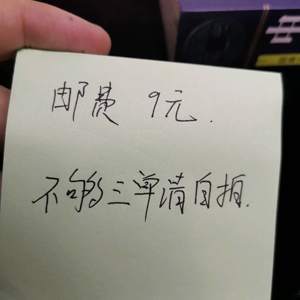 邮费 9元.
不够三单请自拍.